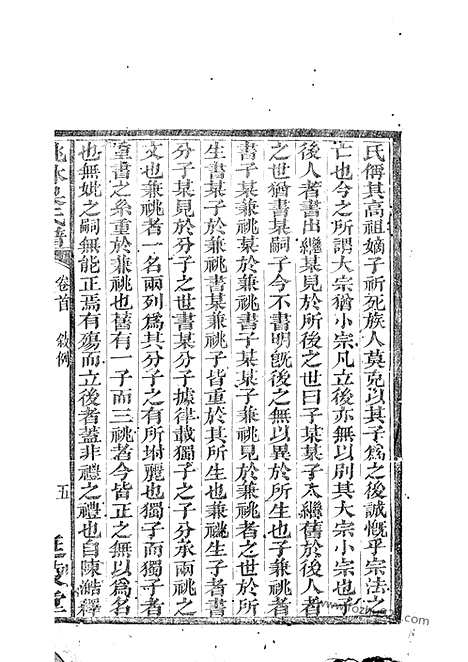 氏傳其高祖嫡子祈死族人莫克以其子為之後誠慨乎宗法之
亡也今之所謂大宗猶小宗凡立後亦無以別其大宗小宗也子
後人者書出繼某見於所後之世曰子某某子太繼舊於後人者
之世猶書某嗣子今不書明旣後之無以異於所生也子兼祧者
書子某兼祧某於兼祧書子某某子兼祧見於兼祧者之世於所
生書子某於兼祧書某兼祧子皆重於其所生也兼祧生子者書
分子某見於分子之世書某分子據律載獨子之子分承兩祧之
文也兼祧者一名兩列爲其分子之有所坿麗也獨子而獨子者
重書之系重於兼祧也舊有一子而三祧者今皆正之無以爲名
也無妣之嗣無能正焉有殤而立後者蓋非禮之禮也自陳澔釋
氏譜
卷首
敘例
五
堂